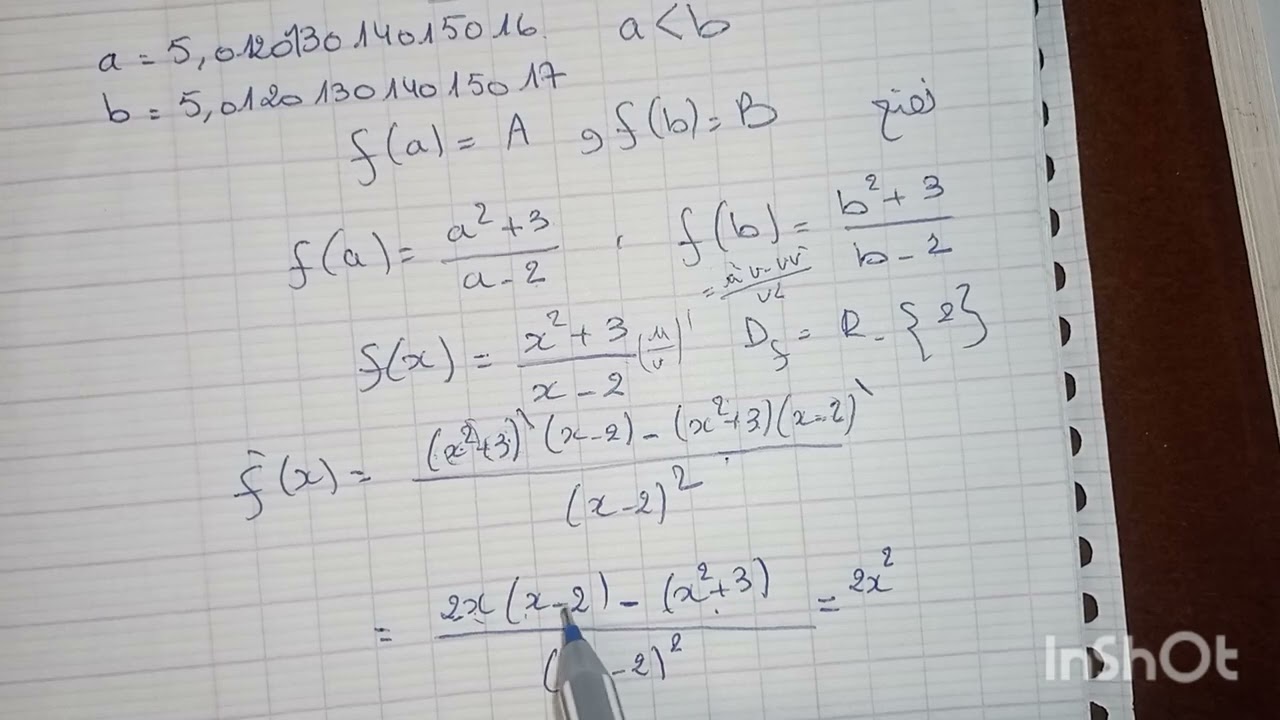 a = 5,012013014015016 a < b
b = 5,012013014015017
f(a) = A , f(b) = B نضع
f(a) = (a² + 3)/(a - 2) , f(b) = (b² + 3)/(b - 2)
f(x) = (x² + 3)/(x - 2) (u/v)' = (u'v - v'u)/v² D_f = R - {2}
f'(x) = ((x² + 3)'(x - 2) - (x² + 3)(x - 2)')/(x - 2)²
= (2x(x - 2) - (x² + 3))/( - 2)² = 2x²
InShOt